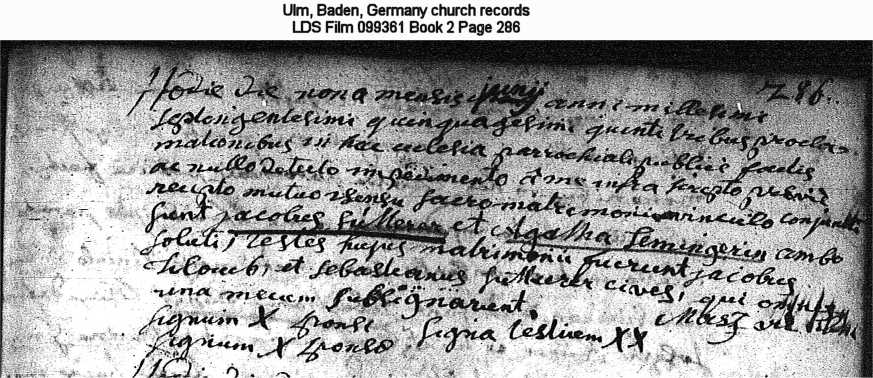 Ulm, Baden, Germany church records
LDS Film 099361 Book 2 Page 286
286.
Hodie die nona mensis junij anni millesimi
septengentesimi quinquagesimi quinti tribus procla=
mationibus in hac eclesia parrochiali publice factis
ac nullo detecto impedimento a me infra scripto
recepto mutuo sensu sacro matrimonii vinculo conjuncti
sunt jacobus sutterer et Agatha Lemingerin ambo
soluti, testes hujus matrimonii fuerunt jacobus
et sebastianus sutterer cives, qui
una mecum subsignarunt.
signum X sponsi signa testium XX
signum X sponsæ
Hodie